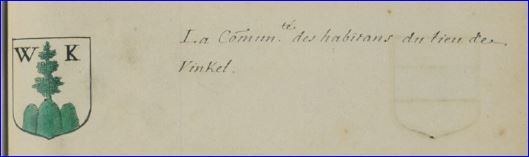 W K
La Comun.té des habitans du lieu de
Vinkel.